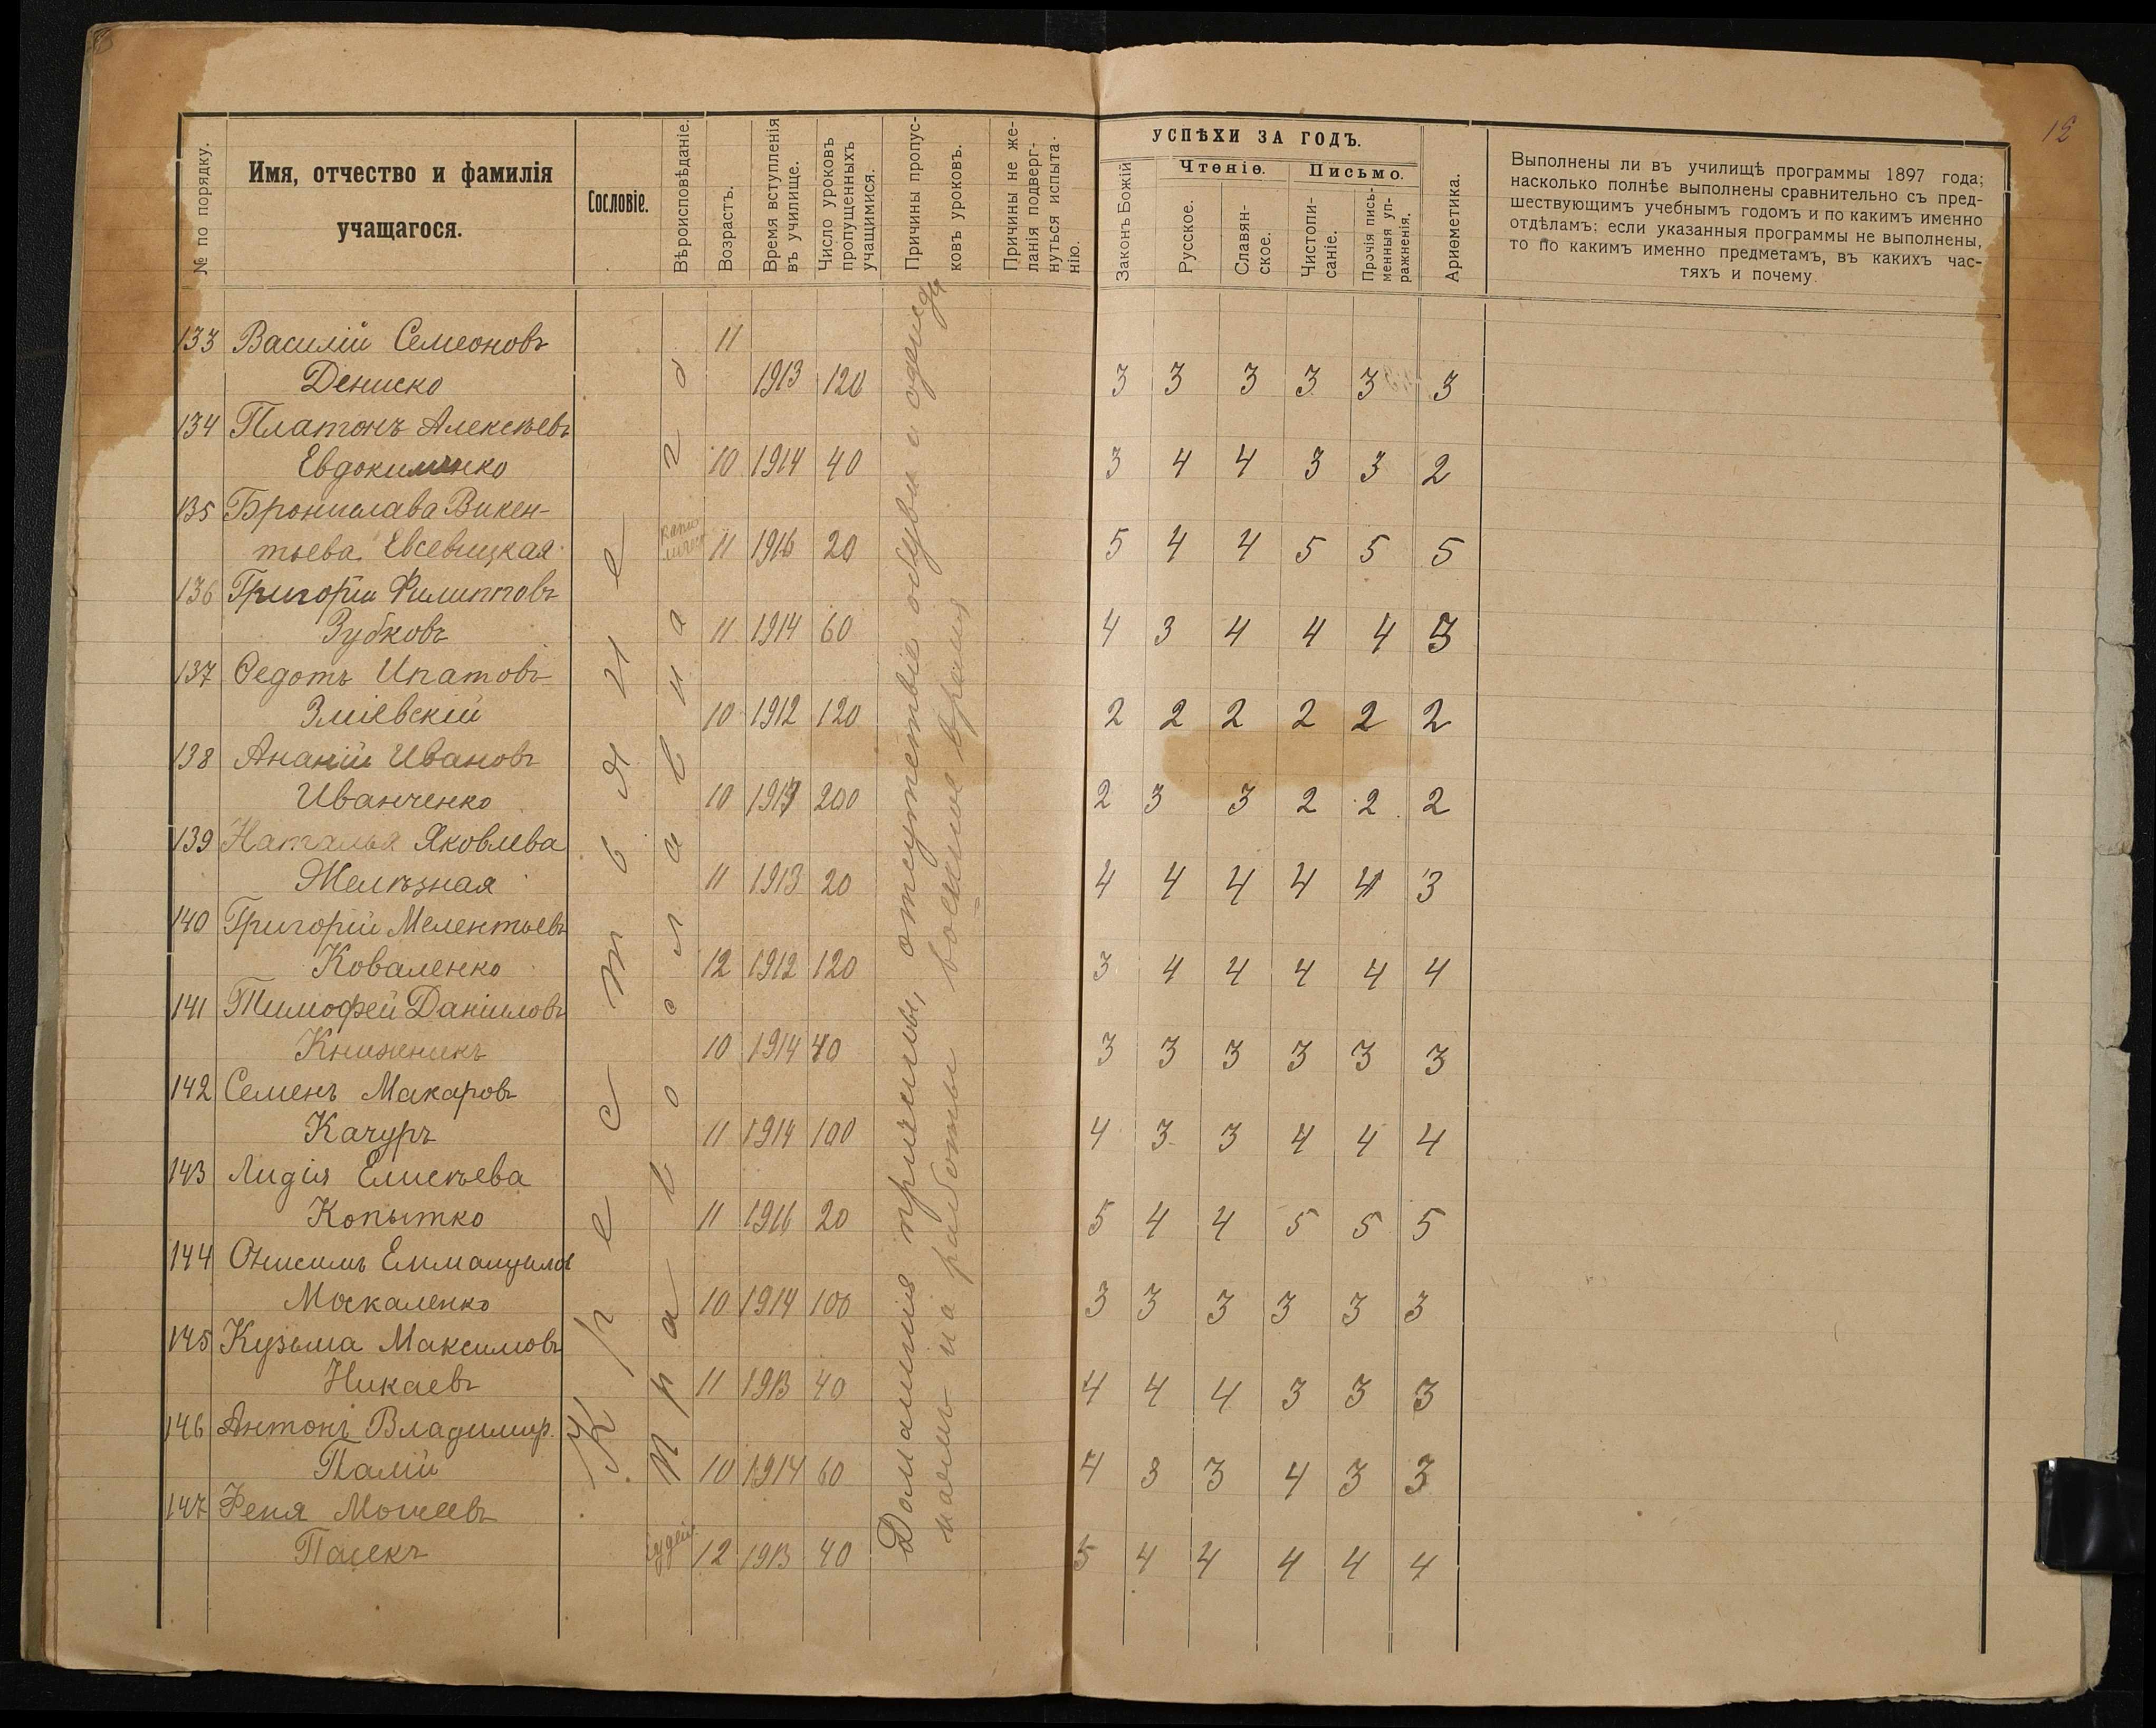 12
№ по порядку.
Имя, отчество и фамилія
учащагося.
Сословіе.
Вѣроисповѣданіе.
Возрастъ.
Время вступленія
въ училище.
Число уроковъ
пропущенныхъ
учащимися.
Причины пропус-
ковъ уроковъ.
Причины не же-
ланія подверг-
нуться испыта-
нію.
УСПѢХИ ЗА ГОДЪ.
Законъ Божій
Чтеніе.
Русское.
Славян-
ское.
Письмо.
Чистопи-
саніе.
Прочія пись-
менныя уп-
ражненія.
Ариѳметика.
Выполнены ли въ училищѣ программы 1897 года;
насколько полнѣе выполнены сравнительно съ пред-
шествующимъ учебнымъ годомъ и по какимъ именно
отдѣламъ: если указанныя программы не выполнены,
то по какимъ именно предметамъ, въ какихъ час-
тяхъ и почему.
Крестьяне
Православная
Домашнія причины, отсутствіе обуви и одежды
наемъ на работы военное время
133 Василій Семеоновъ 11
Дениско 1913 120 3 3 3 3 3 3
134 Платонъ Алексѣевъ
Евдокименко 10 1914 40 3 4 4 3 3 2
135 Бронислава Викен-
тьева Евсевицкая 11 1916 20 5 4 4 5 5 5
136 Григорій Филипповъ
Зубковъ 11 1914 60 4 3 4 4 4 3
137 Ѳедотъ Ипатовъ
Зміевскій 10 1912 120 2 2 2 2 2 2
138 Ананій Ивановъ
Иванченко 10 200 2 3 3 2 2 2
139 Наталья Яковлева
Желѣзная 11 1913 20 4 4 4 4 4 3
140 Григорій Мелентьевъ
Коваленко 12 1912 120 3 4 4 4 4 4
141 Тимофей Даніиловъ
Книжникъ 10 1914 40 3 3 3 3 3 3
142 Семенъ Макаровъ
Качуръ 11 1914 100 4 3 3 4 4 4
143 Лидія Елисѣева
Копытко 11 1916 20 5 4 4 5 5 5
144 Онисимъ Еммануилов
Москаленко 10 1914 100 3 3 3 3 3 3
145 Кузьма Максимовъ
Никаевъ 11 1913 40 4 4 4 3 3 3
146 Антонъ Владимир.
Палій 10 1914 60 4 3 3 4 3 3
147 Феня
Пасекъ іудей. 12 1913 40 5 4 4 4 4 4